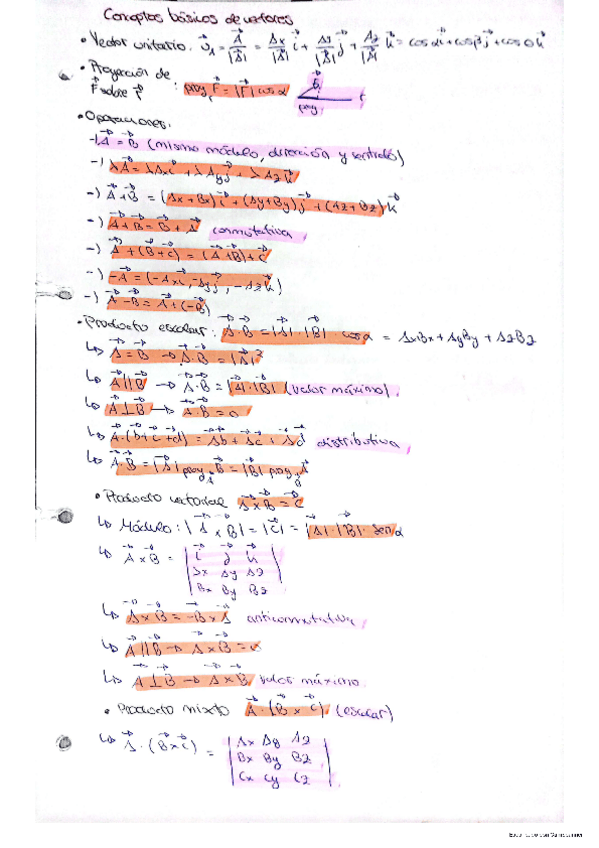 Conceptos básicos de vectores
• Vector unitario. û_A = A⃗/|A⃗| = Ax/|A⃗| i⃗ + Ay/|A⃗| j⃗ + Az/|A⃗| k⃗ = cosα i⃗ + cosβ j⃗ + cosθ k⃗
• Proyección de
F⃗ sobre r⃗ : proy_r F⃗ = |F⃗| cos α
proy
• Operaciones.
-) A⃗ = B⃗ (mismo módulo, dirección y sentido)
-) λA⃗ = λAx i⃗ + λAy j⃗ + λAz k⃗
-) A⃗+B⃗ = (Ax+Bx) i⃗ + (Ay+By) j⃗ + (Az+Bz) k⃗
-) A⃗+B⃗ = B⃗+A⃗ conmutativa
-) A⃗+(B⃗+C⃗) = (A⃗+B⃗)+C⃗
-) -A⃗ = (-Ax i⃗, -Ay j⃗, -Az k⃗)
-) A⃗-B⃗ = A⃗+(-B⃗)
• Producto escalar: A⃗·B⃗ = |A⃗|·|B⃗| cosα = AxBx + AyBy + AzBz
↳ A⃗ = B⃗ → A⃗·B⃗ = |A⃗|²
↳ A⃗ || B⃗ → A⃗·B⃗ = |A⃗|·|B⃗| (valor máximo).
↳ A⃗ ⊥ B⃗ → A⃗·B⃗ = 0
↳ A⃗·(b⃗+c⃗+d⃗) = A⃗b⃗ + A⃗c⃗ + A⃗d⃗ distributiva
↳ A⃗·B⃗ = |A⃗| proy_A B⃗ = |B⃗| proy A⃗
• Producto vectorial A⃗×B⃗ = C⃗
↳ Módulo: |A⃗×B⃗| = |C⃗| = |A⃗|·|B⃗|· senα
↳ A⃗×B⃗ = | i⃗ j⃗ k⃗ |
| Ax Ay Az |
| Bx By Bz |
↳ A⃗×B⃗ = -B⃗×A⃗ anticonmutativa
↳ A⃗ || B⃗ → A⃗×B⃗ = 0
↳ A⃗ ⊥ B⃗ → A⃗×B⃗ valor máximo
• Producto mixto A⃗·(B⃗×C⃗) (escalar)
↳ A⃗·(B⃗×C⃗) = | Ax Ay Az |
| Bx By Bz |
| Cx Cy Cz |